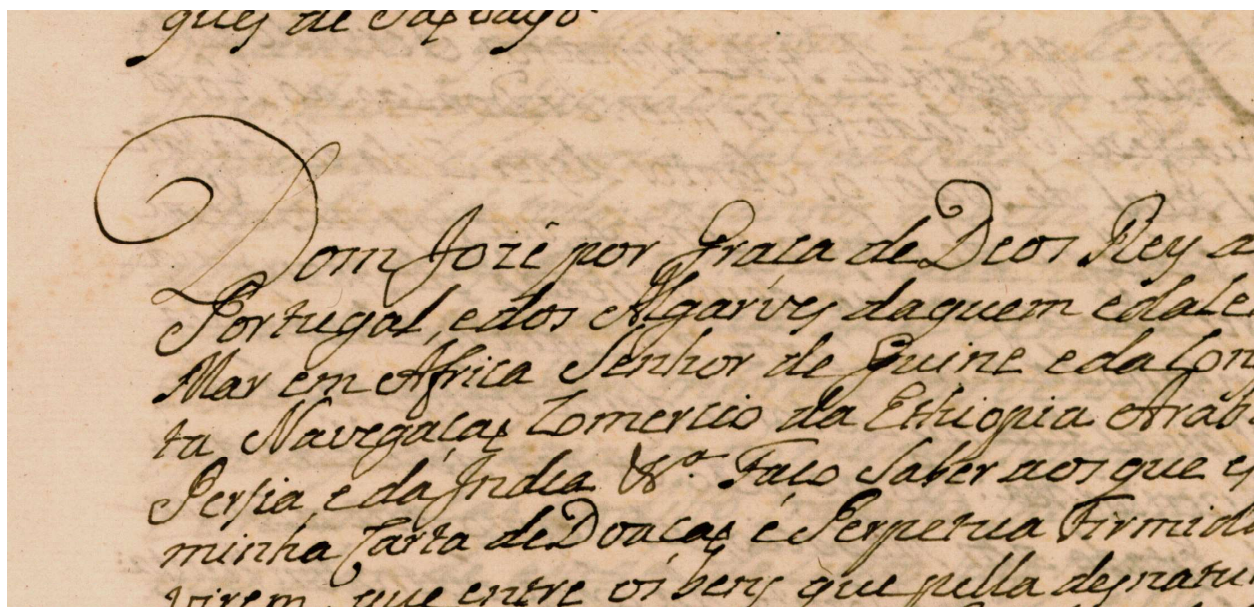 ques de Sam Payo.
Dom Jozé por Graca de Deos Rey d
Portugal, edos Algarves daquem edale
Mar em Africa Senhor de Guine eda Con
ta Navegaçaõ Comercio da Ethiopia Arab
Persia, eda India &ª. Faco saber aos que es
minha Carta de Doacaõ é Perpetua Firmid
virem, que entre os bens que pella desnatu